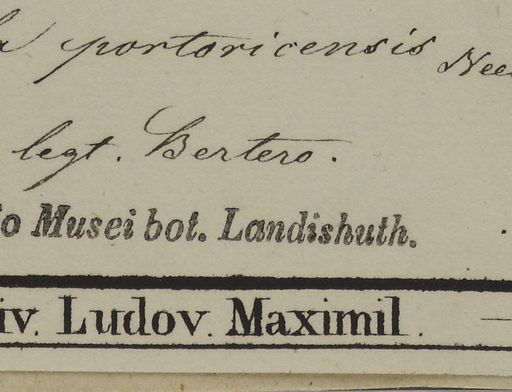 portoricensis Nees
legt. Bertero.
io Musei bot. Landishuth.
iv. Ludov. Maximil.